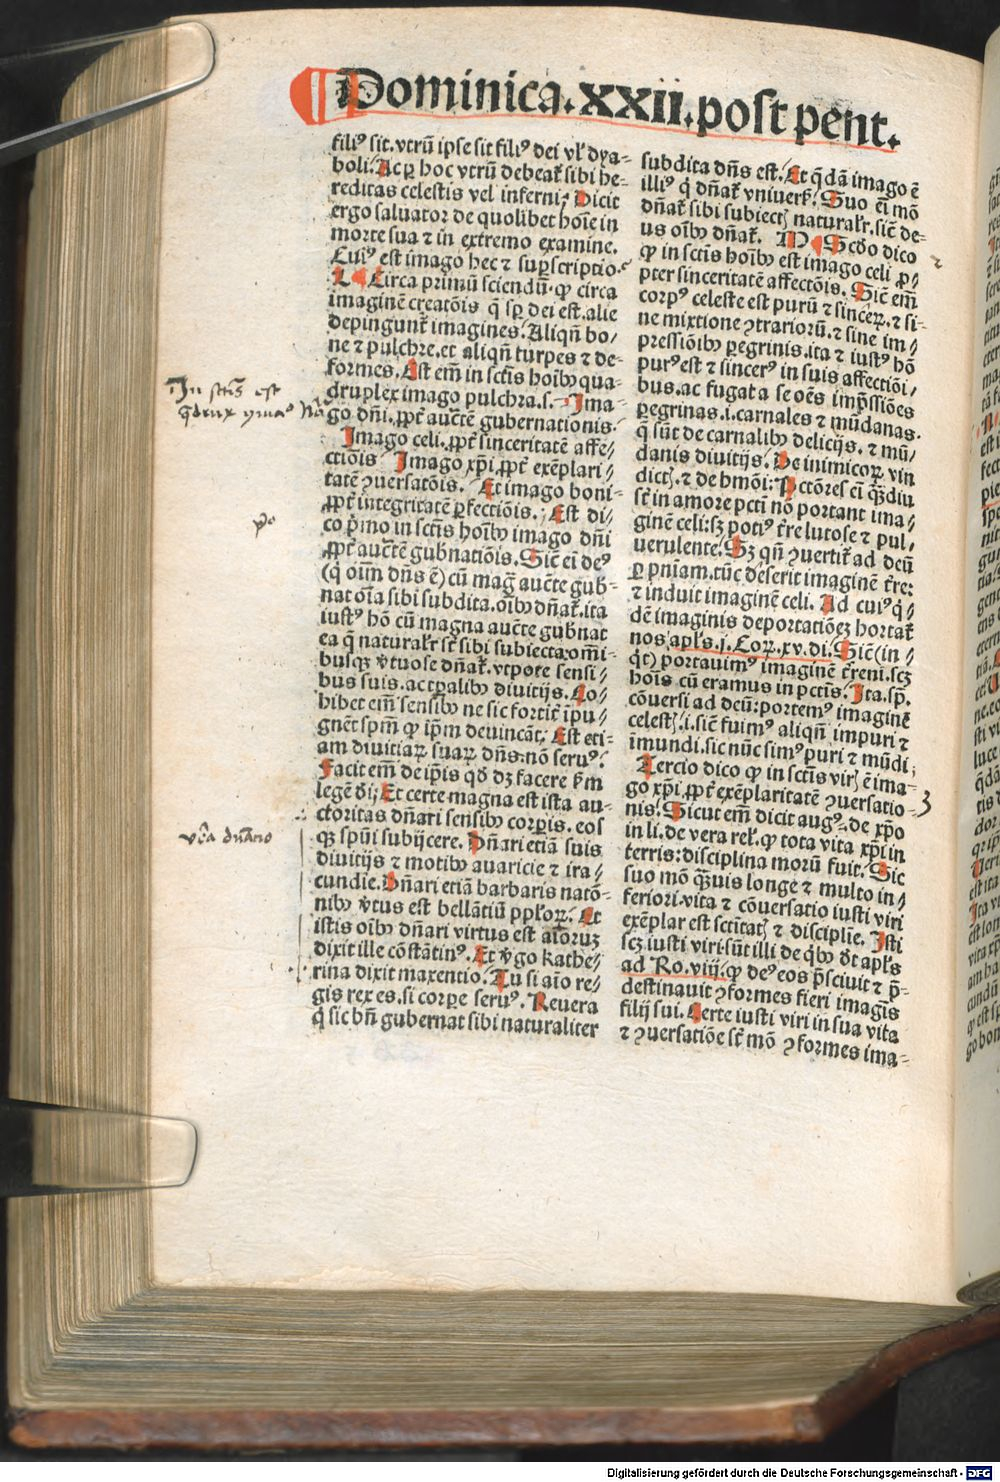 Dominica. xxii. post pent.
filiꝰ sit. vtrū ipse sit filiꝰ dei vl' dya-
boli. Ac ꝑ hoc vtrū debeat̃ sibi he-
reditas celestis vel inferni; Dicit
ergo saluator de quolibet hoīe in
morte sua ⁊ in extremo examine.
Cuiꝰ est imago hec ⁊ suꝑscriptio.
Circa primū sciendū. ꝙ circa
imaginē creatōis q̄ sp̄ dei est. alie
depingunt̃ imagines. Aliqñ bo-
ne ⁊ pulchre. et aliqñ turpes ⁊ de-
formes. Est em̄ in sctīs hoībꝫ qua-
druplex imago pulchra. s. Ima-
go dn̄i. ꝓpt̃ auct̄e gubernationis.
Imago celi. ꝓpt̃ sinceritatē affe/
ctiōis Imago xp̄i ꝓpt̃ exēplari/
tatē ꝯuersatōis. Et imago boni-
ꝓpt̃ integritatē ꝑfectiōis. Est di/
co p̄mo in sctīs hoībꝫ imago dn̄i
ꝓpt̃ auct̄e gubnatiōis. Sic̄ ei deꝰ
(q̇ oīm dn̄s ē) cū mag̃ auct̄e gub-
nat oīa sibi subdita. oībꝫ dn̄at̃. ita
iustꝰ hō cū magna auct̄e gub̄nat
ea q̄ naturalr̃ st̃ sibi subiecta: om̄i-
busqꝫ v̄tuose dn̄at̃. vtpote sensi-
bus suis. ac tꝑalibꝫ diuitijs. Co-
hibet em̄ sensibꝫ ne sic fortit̃ īpu/
gnēt spm̄ ꝙ ip̄m deuincāt. Est eti-
am diuitiaꝝ suaꝝ dn̄s. nō seruꝰ.
Facit em̄ de ip̄is qḋ dꝫ facere km̄
legē ḋi; Et certe magna est ista au-
ctoritas dn̄ari sensibꝫ corꝑis. eos
qꝫ spūi subijcere. Dn̄ari etiā suis
diuitijs ⁊ motibꝫ auaricie ⁊ ira-
cundie. Dn̄ari etiā barbaris natō-
nibꝫ v̄tus est bellātiū pploꝝ. Et
istis oībꝫ dn̄ari virtus est aīoruꝫ
dixit ille cōstātinꝰ. Et v̇go kathe/
rina dixit maxentio. Tu si aīo re/
gis rex es. si corꝑe seruꝰ. Reuera
q̇ sic bn̄ gubernat sibi naturaliter
subdita dn̄s est. Et q̄dā imago ē
illiꝰ q̇ dn̄at̃ vniuerẜ. Suo ei mō
dn̄at̃ sibi subiectꝭ naturalr̃. sic̄ de-
us oībꝫ dn̄at̃. Scḋo dico
ꝙ in sctīs hoībꝫ est imago celi ꝓ-
pter sinceritatē affectōis. Sic̄ em̄
corpꝰ celeste est purū ⁊ sinceꝝ. ⁊ si-
ne mixtione ꝯtrariorū. ⁊ sine im/
pressiōibꝫ ꝑegrinis. ita ⁊ iustꝰ hō
purꝰ est ⁊ sincerꝰ in suis affectiōi/
bus. ac fugat a se oēs imp̄ssiōes
ꝑegrinas. i. carnales ⁊ mūdanas.
q̄ sūt de carnalibꝫ delicijs. ⁊ mū/
danis diuitijs. De inimicoꝝ vin
dictꝭ. ⁊ de hmōi: Pctōres ei q̄ꝫdiu
st̃ in amore pcti nō portant ima/
ginē celi: sꝫ potiꝰ t̃re lutose ⁊ pul/
uerulente. Sꝫ qn̄ ꝯuertit̃ ad deū
ꝑ pnīam. tūc deserit imaginē t̃re:
⁊ induit imaginē celi. Ad cuiꝰ q̇/
dē imaginis deportatiōeꝫ hortat̃
nos apl's. j. Coꝝ. xv. di. Sic̄ (in/
q̇t) portauimꝰ imaginē t̃reni. scꝫ
hoīs cū eramus in pctīs. Ita. sp̄.
cōuersi ad deū: portemꝰ imaginē
celestꝭ. i. sic̄ fuimꝰ aliqn̄ impuri ⁊
īmundi. sic nūc simꝰ puri ⁊ mūdi;
Tercio dico ꝙ in sctīs virꝭ ē ima-
go xp̄i. ꝓpt̃ exēplaritatē ꝯuersatio-
nis. Sicut em̄ dicit augꝰ. de xp̄o
in li. de vera rel'. ꝙ tota vita xp̄i in
terris: disciplina morū fuit. Sic
suo mō q̄ꝫuis longe ⁊ multo in/
feriori. vita ⁊ cōuersatio iusti viri
exēplar est sctitatꝭ ⁊ disciplīe. Isti
scꝫ iusti viri. sūt illi de q̇bꝫ d̄t apl's
ad Ro. viij. ꝙ deꝰ eos p̄sciuit ⁊ p̄-
destinauit ꝯformes fieri imagīs
filij sui. Certe iusti viri in sua vita
⁊ ꝯuersatiōe st̃ mō ꝯformes ima-
In sctīs est
pᵒ
2
3
Digitalisierung gefördert durch die Deutsche Forschungsgemeinschaft - DFG